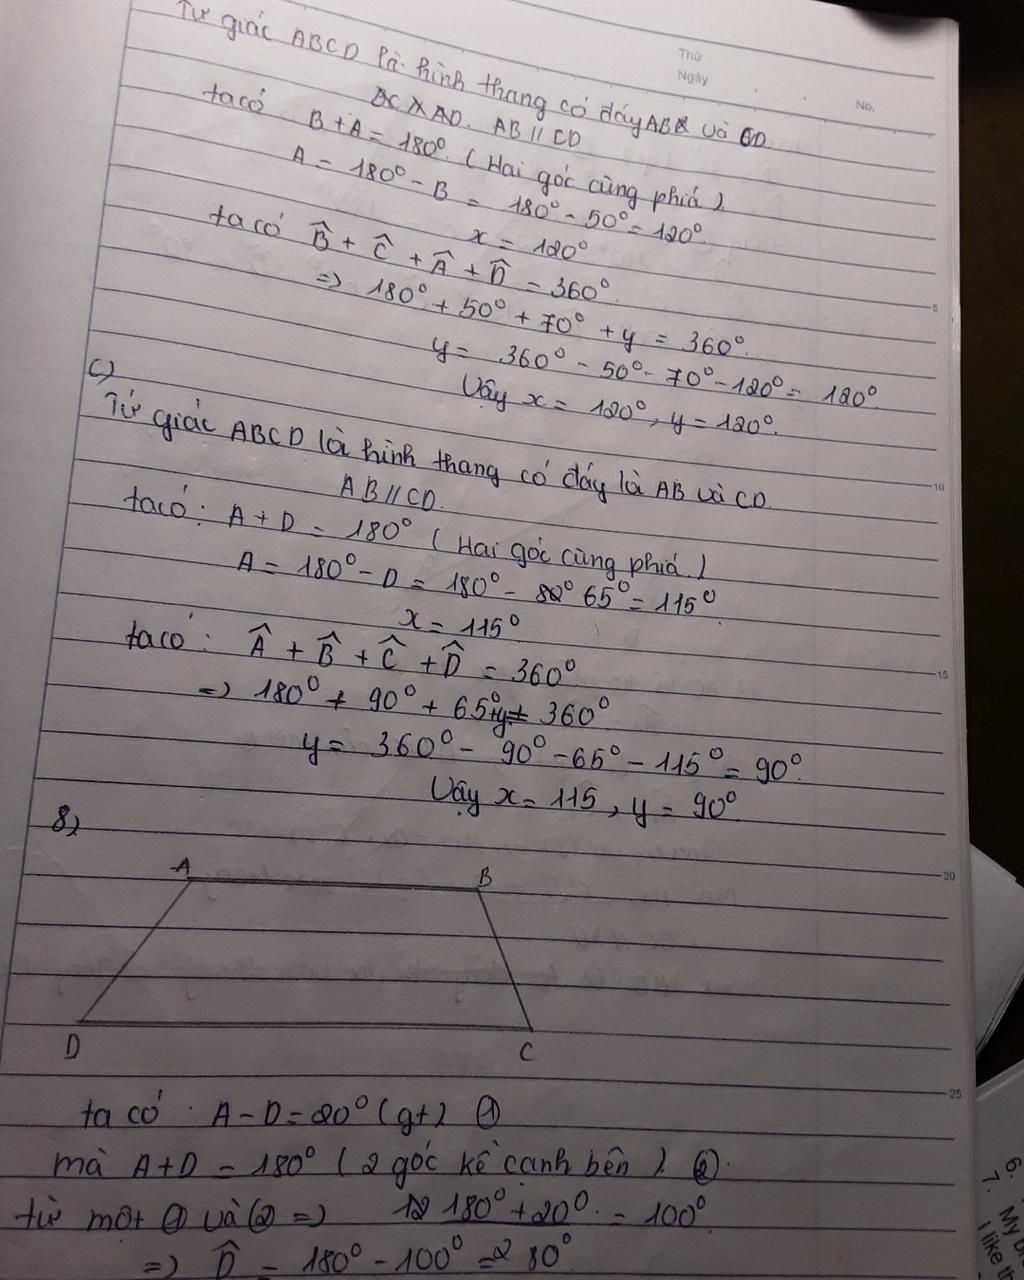 Tứ giác ABCD là hình thang có đáy AB và CD.
Thứ
Ngày
No.
AB // CD
ta có B + A = 180° (Hai góc cùng phía)
A = 180° - B = 180° - 50° = 120°
x = 120°
ta có B̂ + Ĉ + Â + D̂ = 360°
=> 180° + 50° + 70° + y = 360°
y = 360° - 50° - 70° - 120° = 120°
Vậy x = 120°, y = 120°.
c)
Tứ giác ABCD là hình thang có đáy là AB và CD.
AB // CD.
ta có: A + D = 180° (Hai góc cùng phía)
A = 180° - D = 180° - 65° = 115°
x = 115°
ta có: Â + B̂ + Ĉ + D̂ = 360°
=> 180° + 90° + 65° + y = 360°
y = 360° - 90° - 65° - 115° = 90°
Vậy x = 115, y = 90°
8)
A B
D C
ta có: A - D = 20° (gt) ①
mà A + D = 180° (2 góc kề cạnh bên). ②.
từ một ① và ② => 180° + 20° = 100°
=> D̂ = 180° - 100° = 80°
5
10
15
20
25
6.
7. My
I like th